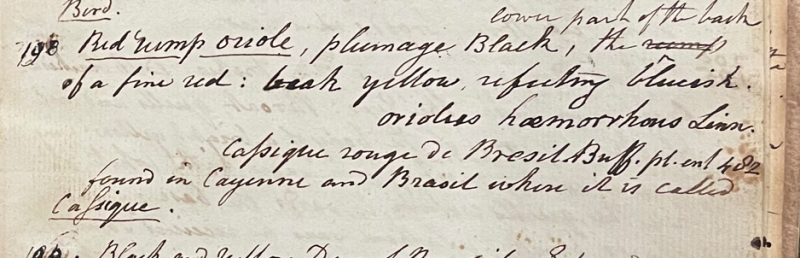 Bird.
lower part of the back
198 Red rump oriole, plumage Black, the rump
of a fine red: beak yellow, reflecting blueish.
oriolus hæmorrhous Linn.
Cassique rouge de Bresil Buff. pl. enl 482
found in Cayenne and Brasil where it is called
Cassique.
Black and yellow